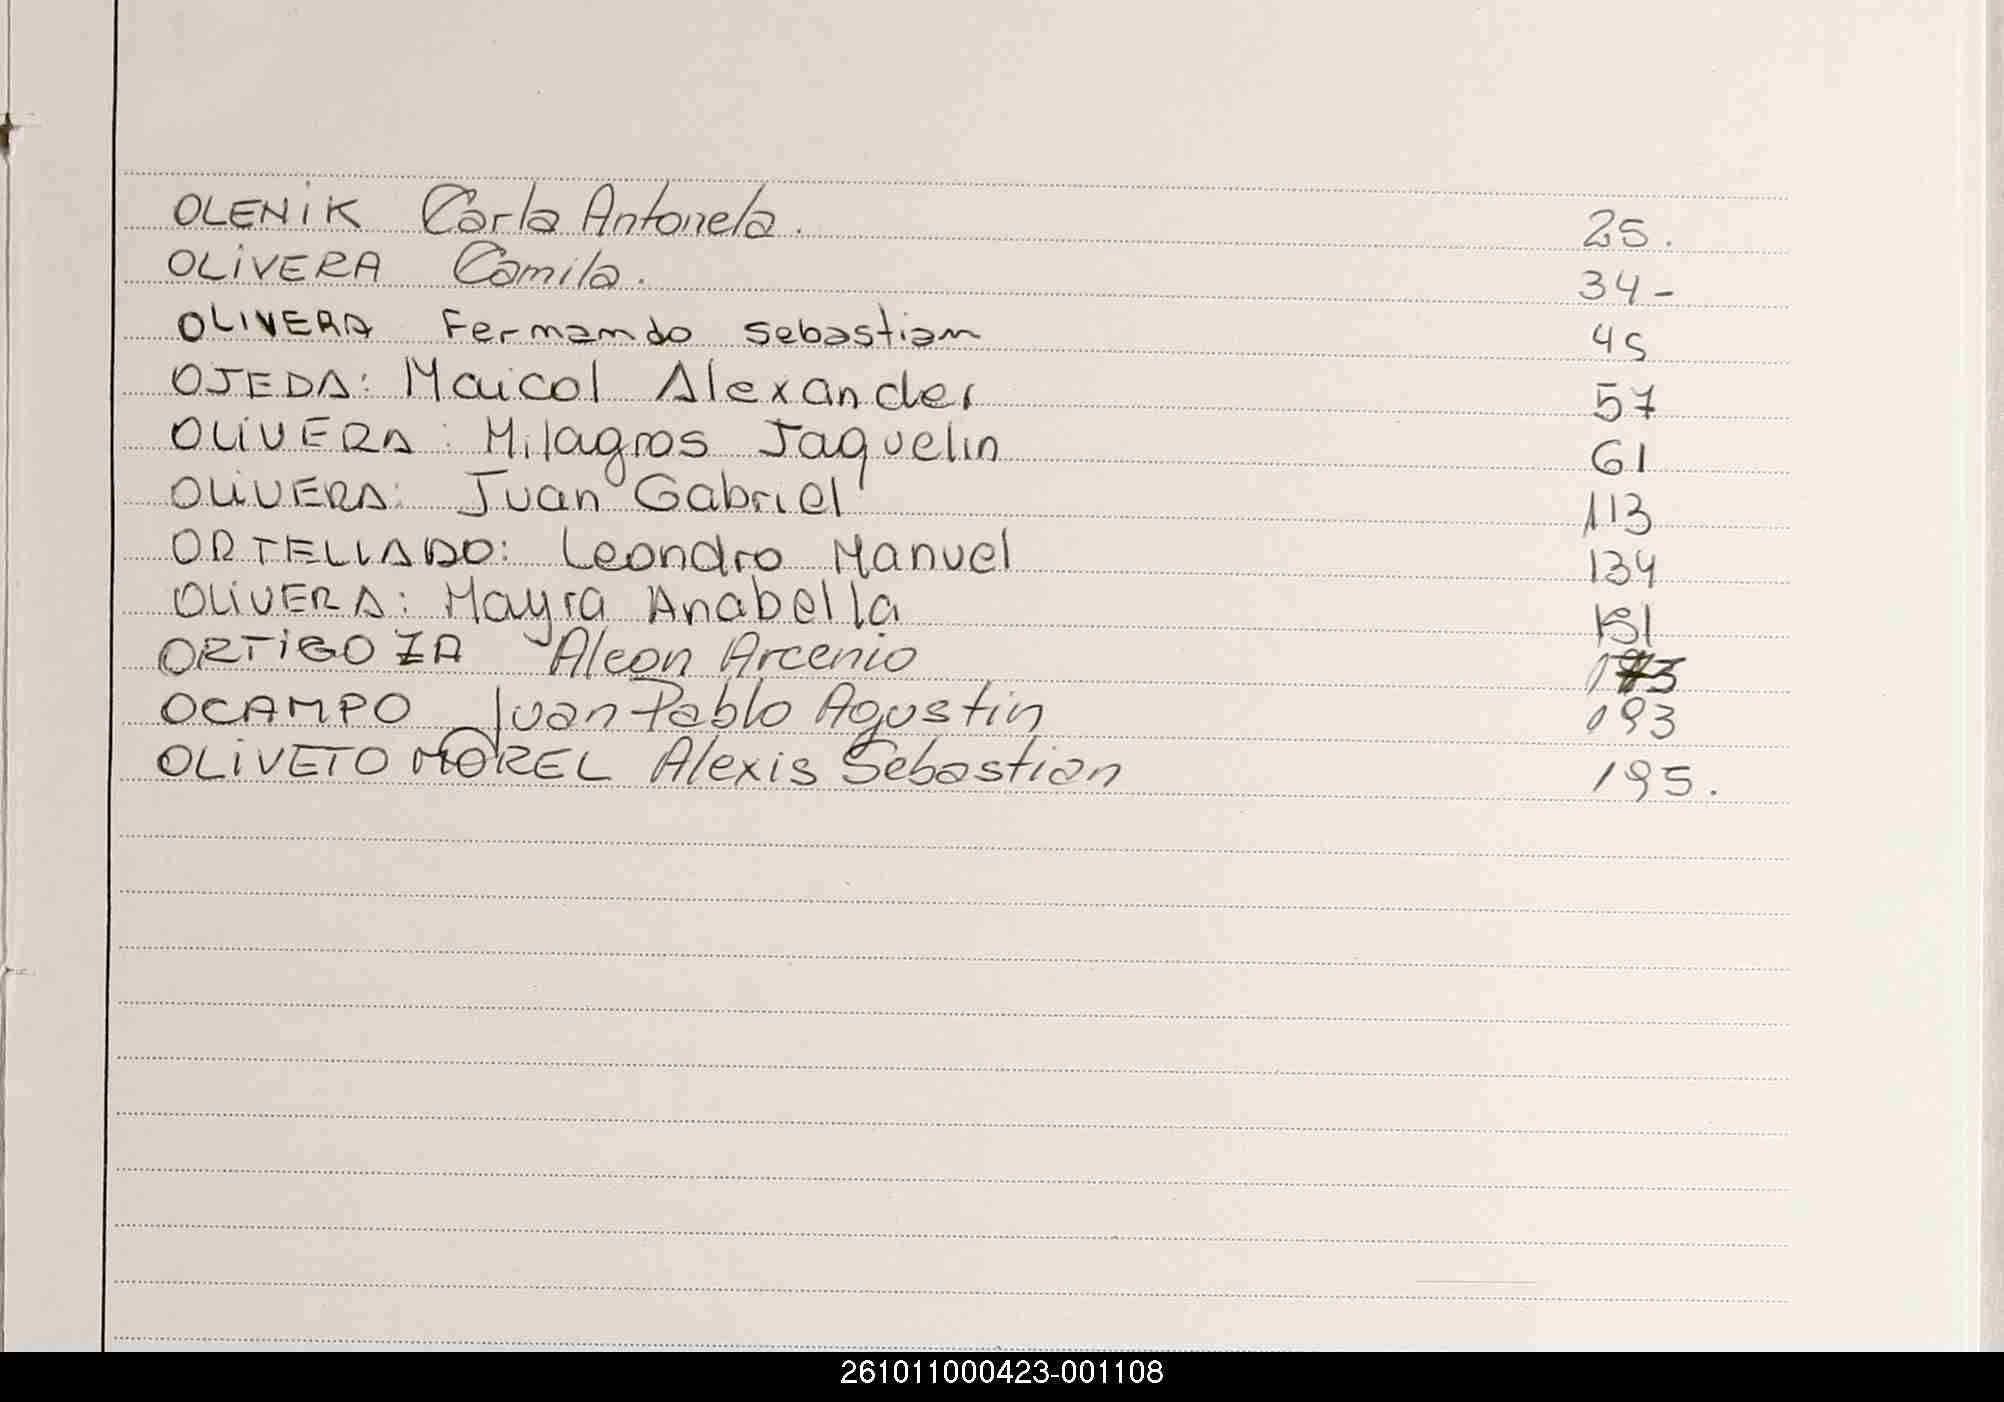 OLENIK Carla Antonela. 25.
OLIVERA Camila. 34-
OLIVERA Fernando Sebastian 45
OJEDA: Maicol Alexander 57
OLIVERA: Milagros Jaquelin 61
OLIVERA: Juan Gabriel 113
ORTELLADO: Leandro Manuel 134
OLIVERA: Mayra Anabella 151
ORTIGOZA Aleon Arcenio
OCAMPO Juan Pablo Agustin 193
OLIVETO MOREL Alexis Sebastian 195.
261011000423-001108